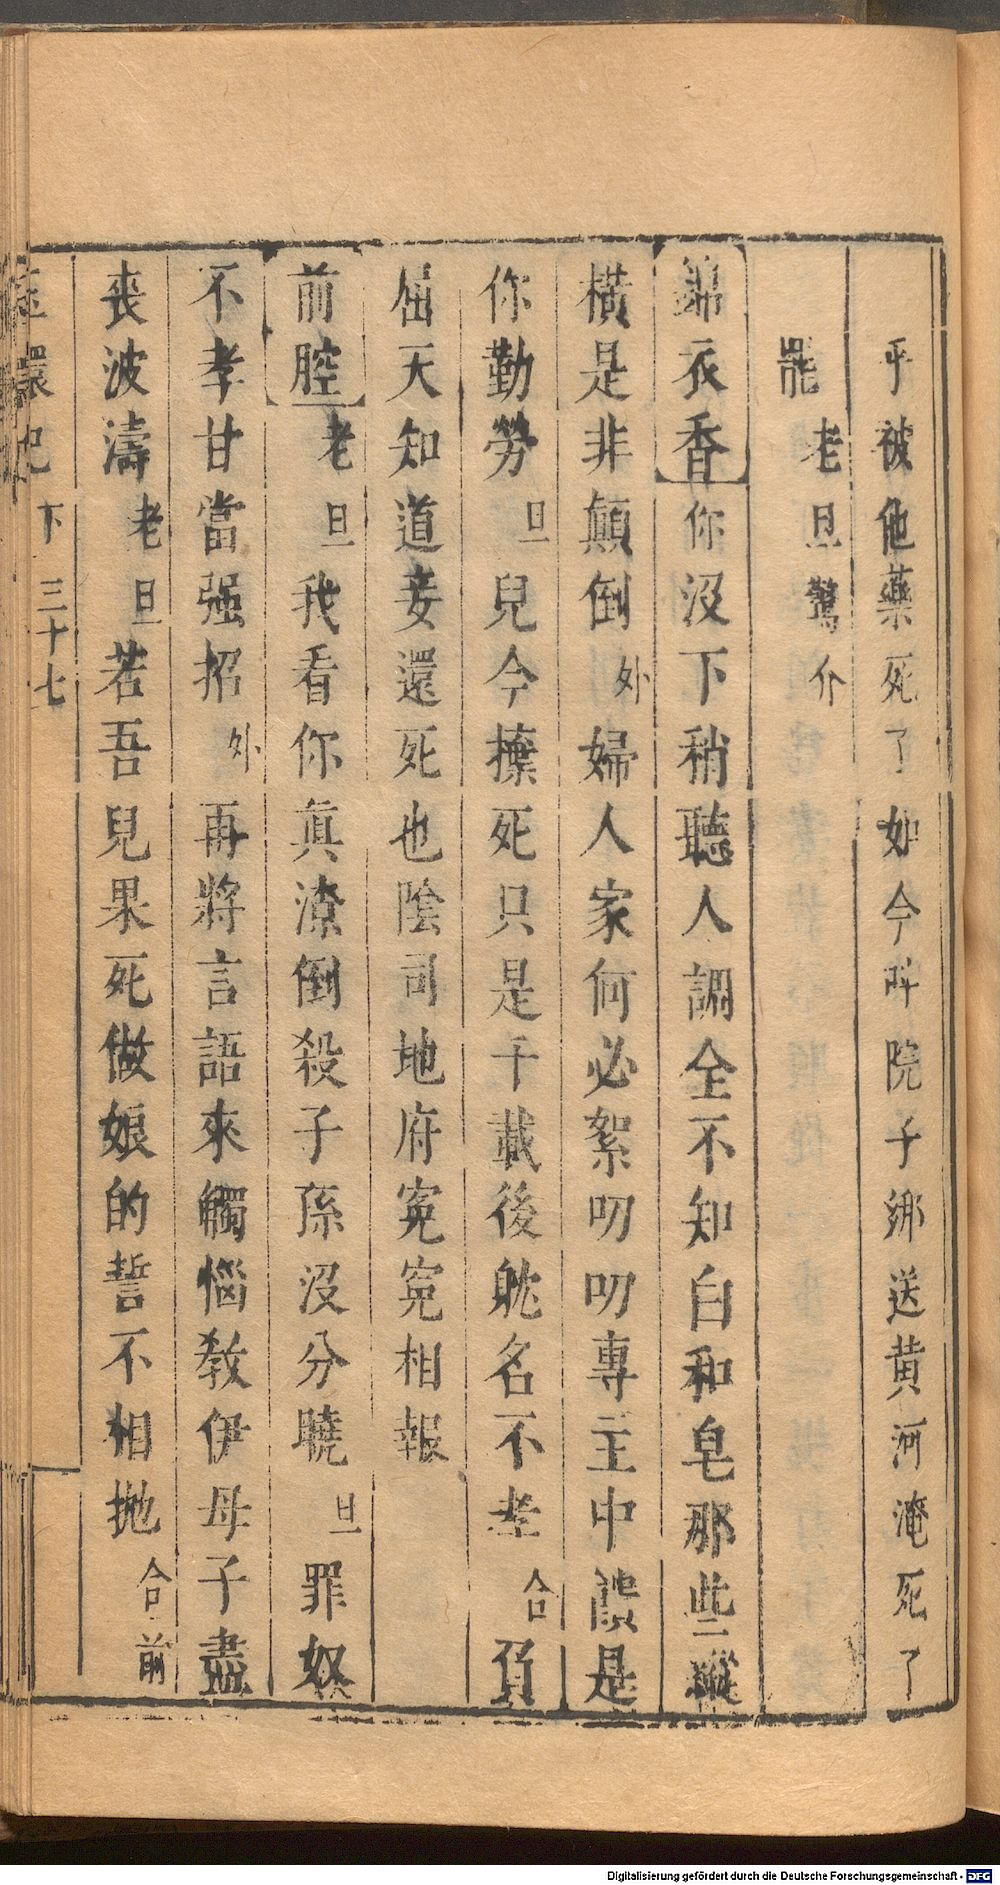 乎被他藥死了如今呌院子綁送黄河淹死了
罷老旦驚介
錦衣香你沒下稍聽人調全不知白和皂那些縱
橫是非顛倒外婦人家何必絮叨叨專主中饋是
你勤勞旦兒今撪死只是千載後躭名不孝合負
屈天知道妾還死也陰司地府寃寃相報
前腔老旦我看你真潦倒殺子孫沒分曉旦罪奴
不孝甘當强招外再將言語來觸惱敎伊母子盡
喪波濤老旦若吾兒果死做娘的誓不相抛合前
玉環記 下 三十七
Digitalisierung gefördert durch die Deutsche Forschungsgemeinschaft - DFG